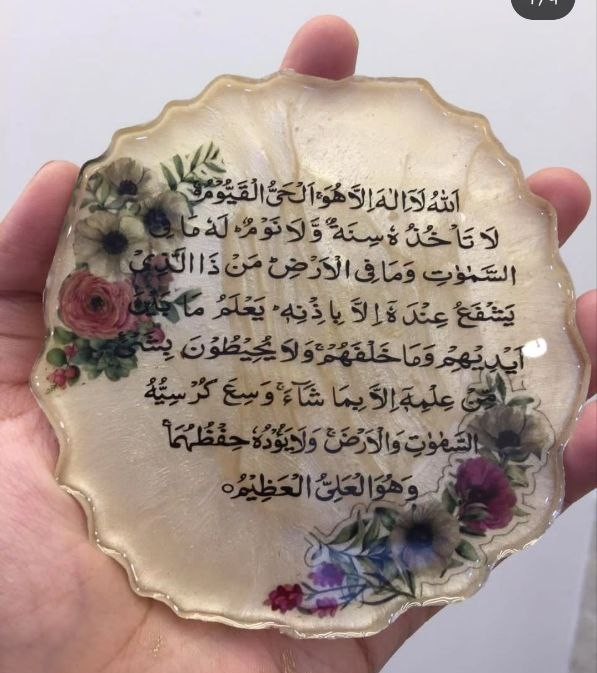 اَللّٰهُ لَاۤ اِلٰهَ اِلَّا هُوَ ۚ اَلْحَیُّ الْقَیُّوْمُ ۚ
لَا تَاْخُذُهٗ سِنَةٌ وَّلَا نَوْمٌ ؕ لَهٗ مَا فِی
السَّمٰوٰتِ وَمَا فِی الْاَرْضِ ؕ مَنْ ذَا الَّذِیْ
یَشْفَعُ عِنْدَهٗۤ اِلَّا بِاِذْنِهٖ ؕ یَعْلَمُ مَا بَیْنَ
اَیْدِیْهِمْ وَمَا خَلْفَهُمْ ۚ وَلَا یُحِیْطُوْنَ بِشَیْءٍ
مِّنْ عِلْمِهٖۤ اِلَّا بِمَا شَآءَ ۚ وَسِعَ کُرْسِیُّهُ
السَّمٰوٰتِ وَالْاَرْضَ ۚ وَلَا یَـُٔوْدُهٗ حِفْظُهُمَا ۚ
وَهُوَ الْعَلِیُّ الْعَظِیْمُ ۝